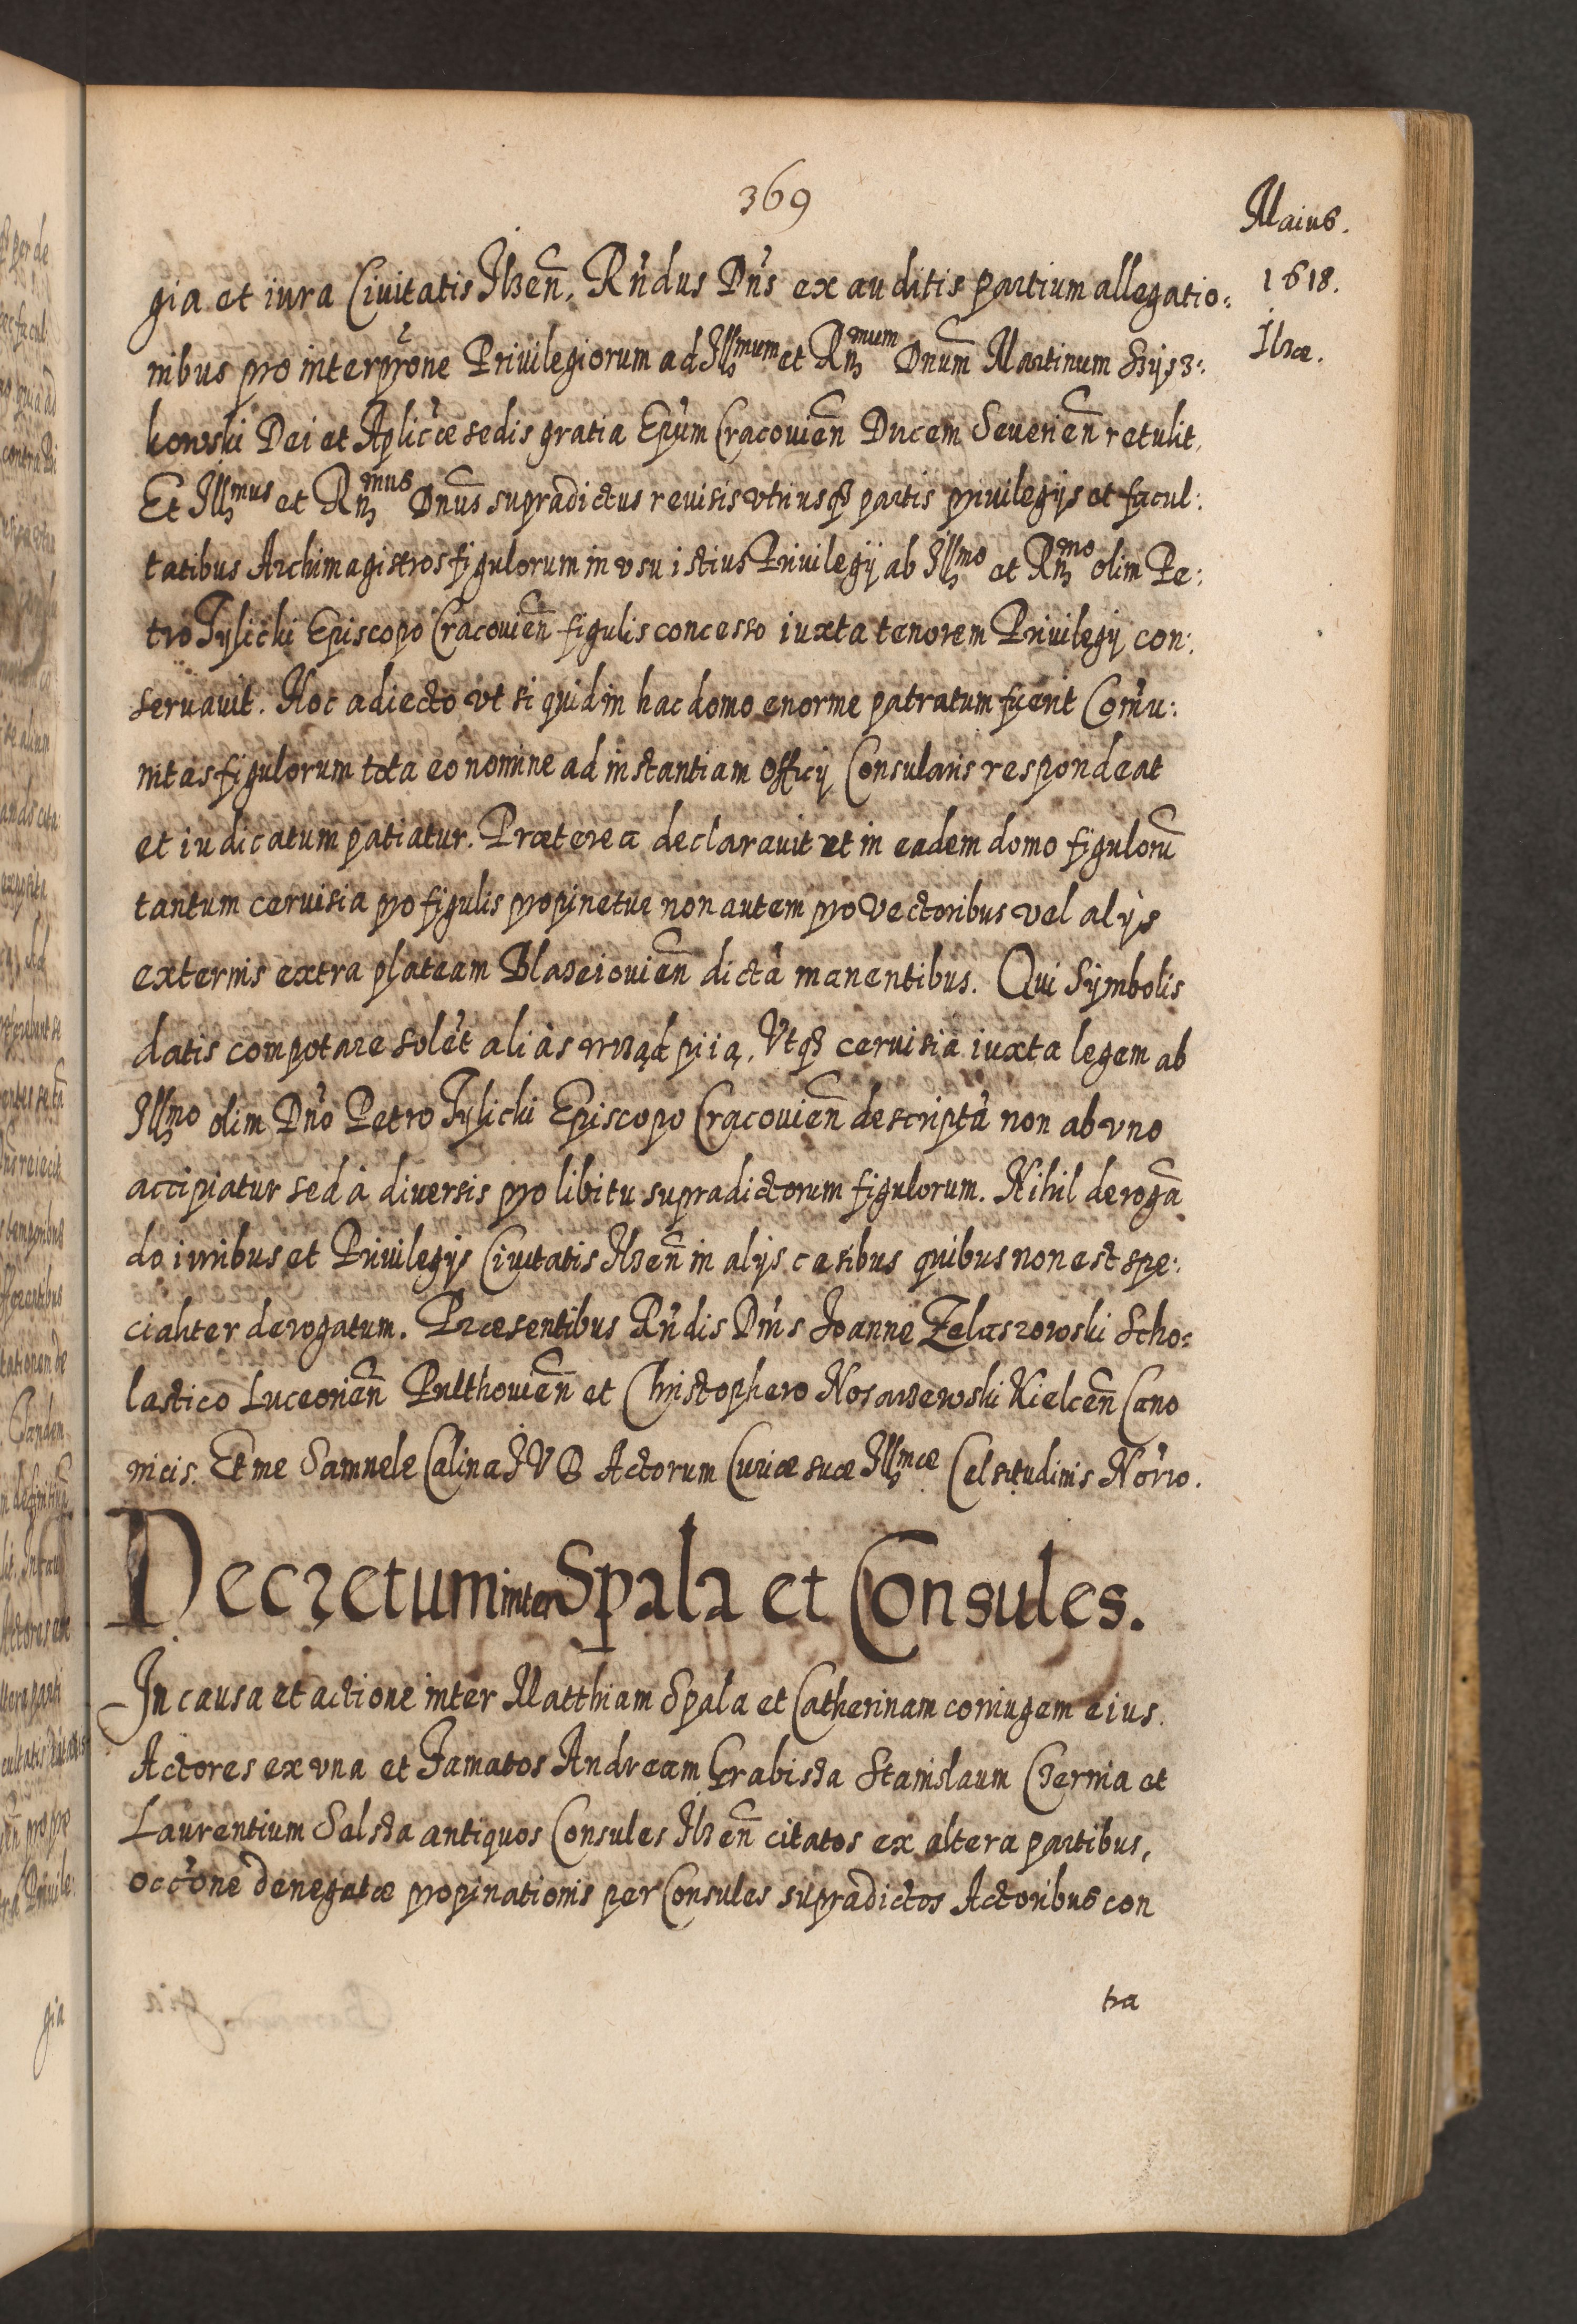 369
Maius.
1618.
Ilzæ.
gia et iura Civitatis Ilzen̄. Rn̄dus Dn̄s ex auditis partium allegatio:
nibus pro interpr̄one Privilegiorum ad Illmum et Rnmum Dnum Martinum Szysz:
kowski Dei et Aplicæ sedis gratia Epum Cracovien̄ Ducem Severien̄ retulit.
Et Illmus et Rnmus Dnus supradictus revisis vtriusq3 partis privilegijs et facul:
tatibus Archimagistros figulorum in vsu istius Privilegij ab Illmo et Rnmo olim Pe:
tro Tylicki Episcopo Cracovien̄ figulis concesso iuxta tenorem Privilegij con:
servavit. Hoc adiecto vt si quid in hac domo enorme patratum fuerit Com̄u:
nitas figulorum tota eo nomine ad instantiam officij Consularis respondeat
et iudicatum patiatur. Præterea declaravit vt in eadem domo figulorū
tantum cervisia pro figulis propinetur non autem pro vectoribus vel alijs
externis extra plateam Blazeiovien̄ dictā manentibus. Qui Symbolis
datis compotare solēt alias wrząd piią. Vtq3 cervisia iuxta legem ab
Illmo olim Dn̄o Petro Tylicki Episcopo Cracovien̄ descriptā non ab vno
accipiatur sed à diversis pro libitu supradictorum figulorum. Nihil derogā
do iuribus et Privilegijs Civitatis Ilzen̄ in alijs casibus quibus non est spe:
cialiter derogatum. Præsentibus Rn̄dis Dn̄is Joanne Zelaszowski Scho:
lastico Luceorien̄ Pulthovien̄ et Christophero Nosarzewski Kielcen̄ Cano
nicis. Et me Samuele Calina I V D Actorum Curiæ suæ Illmæ Celsitudinis Not̄rio.
Decretum inter Spala et Consules.
In causa et actione inter Matthiam Spala et Catherinam coniugem eius
Actores ex vna et Famatos Andream Grabista Stanislaum Czernia et
Laurentium Salsza antiquos Consules Ilzen̄ citatos ex altera partibus,
occ̄one denegatæ propinationis per Consules supradictos Actoribus con
tra